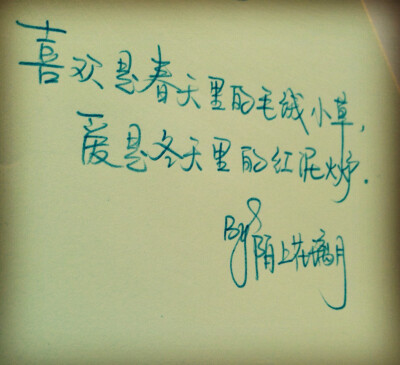 喜欢是春天里的毛绒小草，
爱是冬天里的红泥火炉.
By 陌上花满月